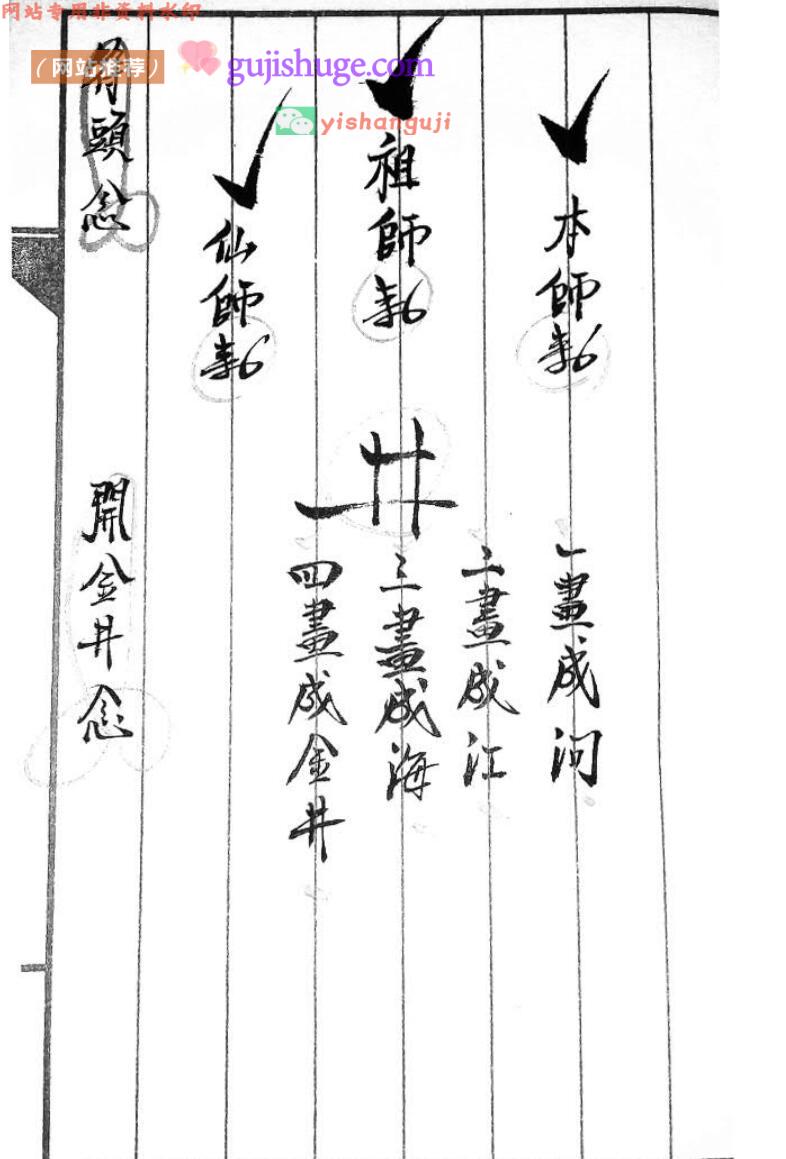 网站专用非资料水印
（网站推荐）
gujishuge.com
yishanguji
本師勅
祖師勅
仙師勅
井
一畫成河
二畫成江
三畫成海
四畫成金井
頭念
開金井念